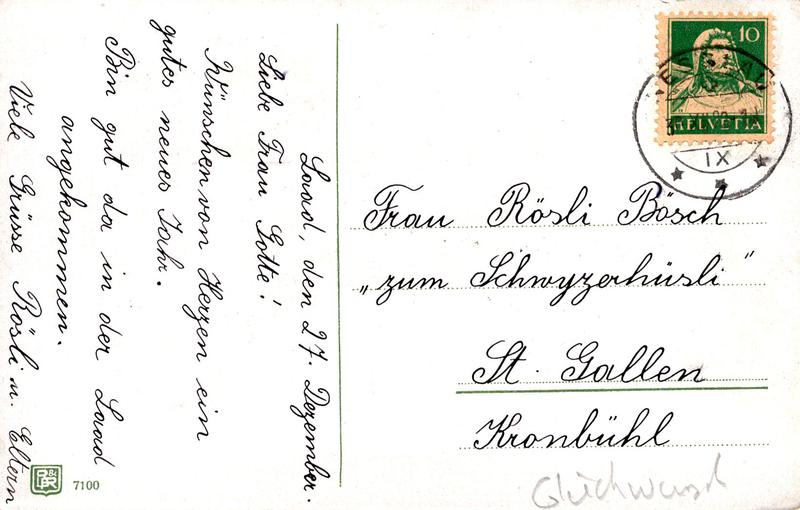 Laad, den 27. Dezember.
Liebe Frau Gotte!
Wünschen von Herzen ein
gutes neues Jahr.
Bin gut da in der Laad
angekommen.
Viele Grüsse Rösli u. Eltern
10
HELVETIA
IX
Frau Rösli Bösch
„zum Schwyzerhüsli"
St. Gallen
Kronbühl
7100